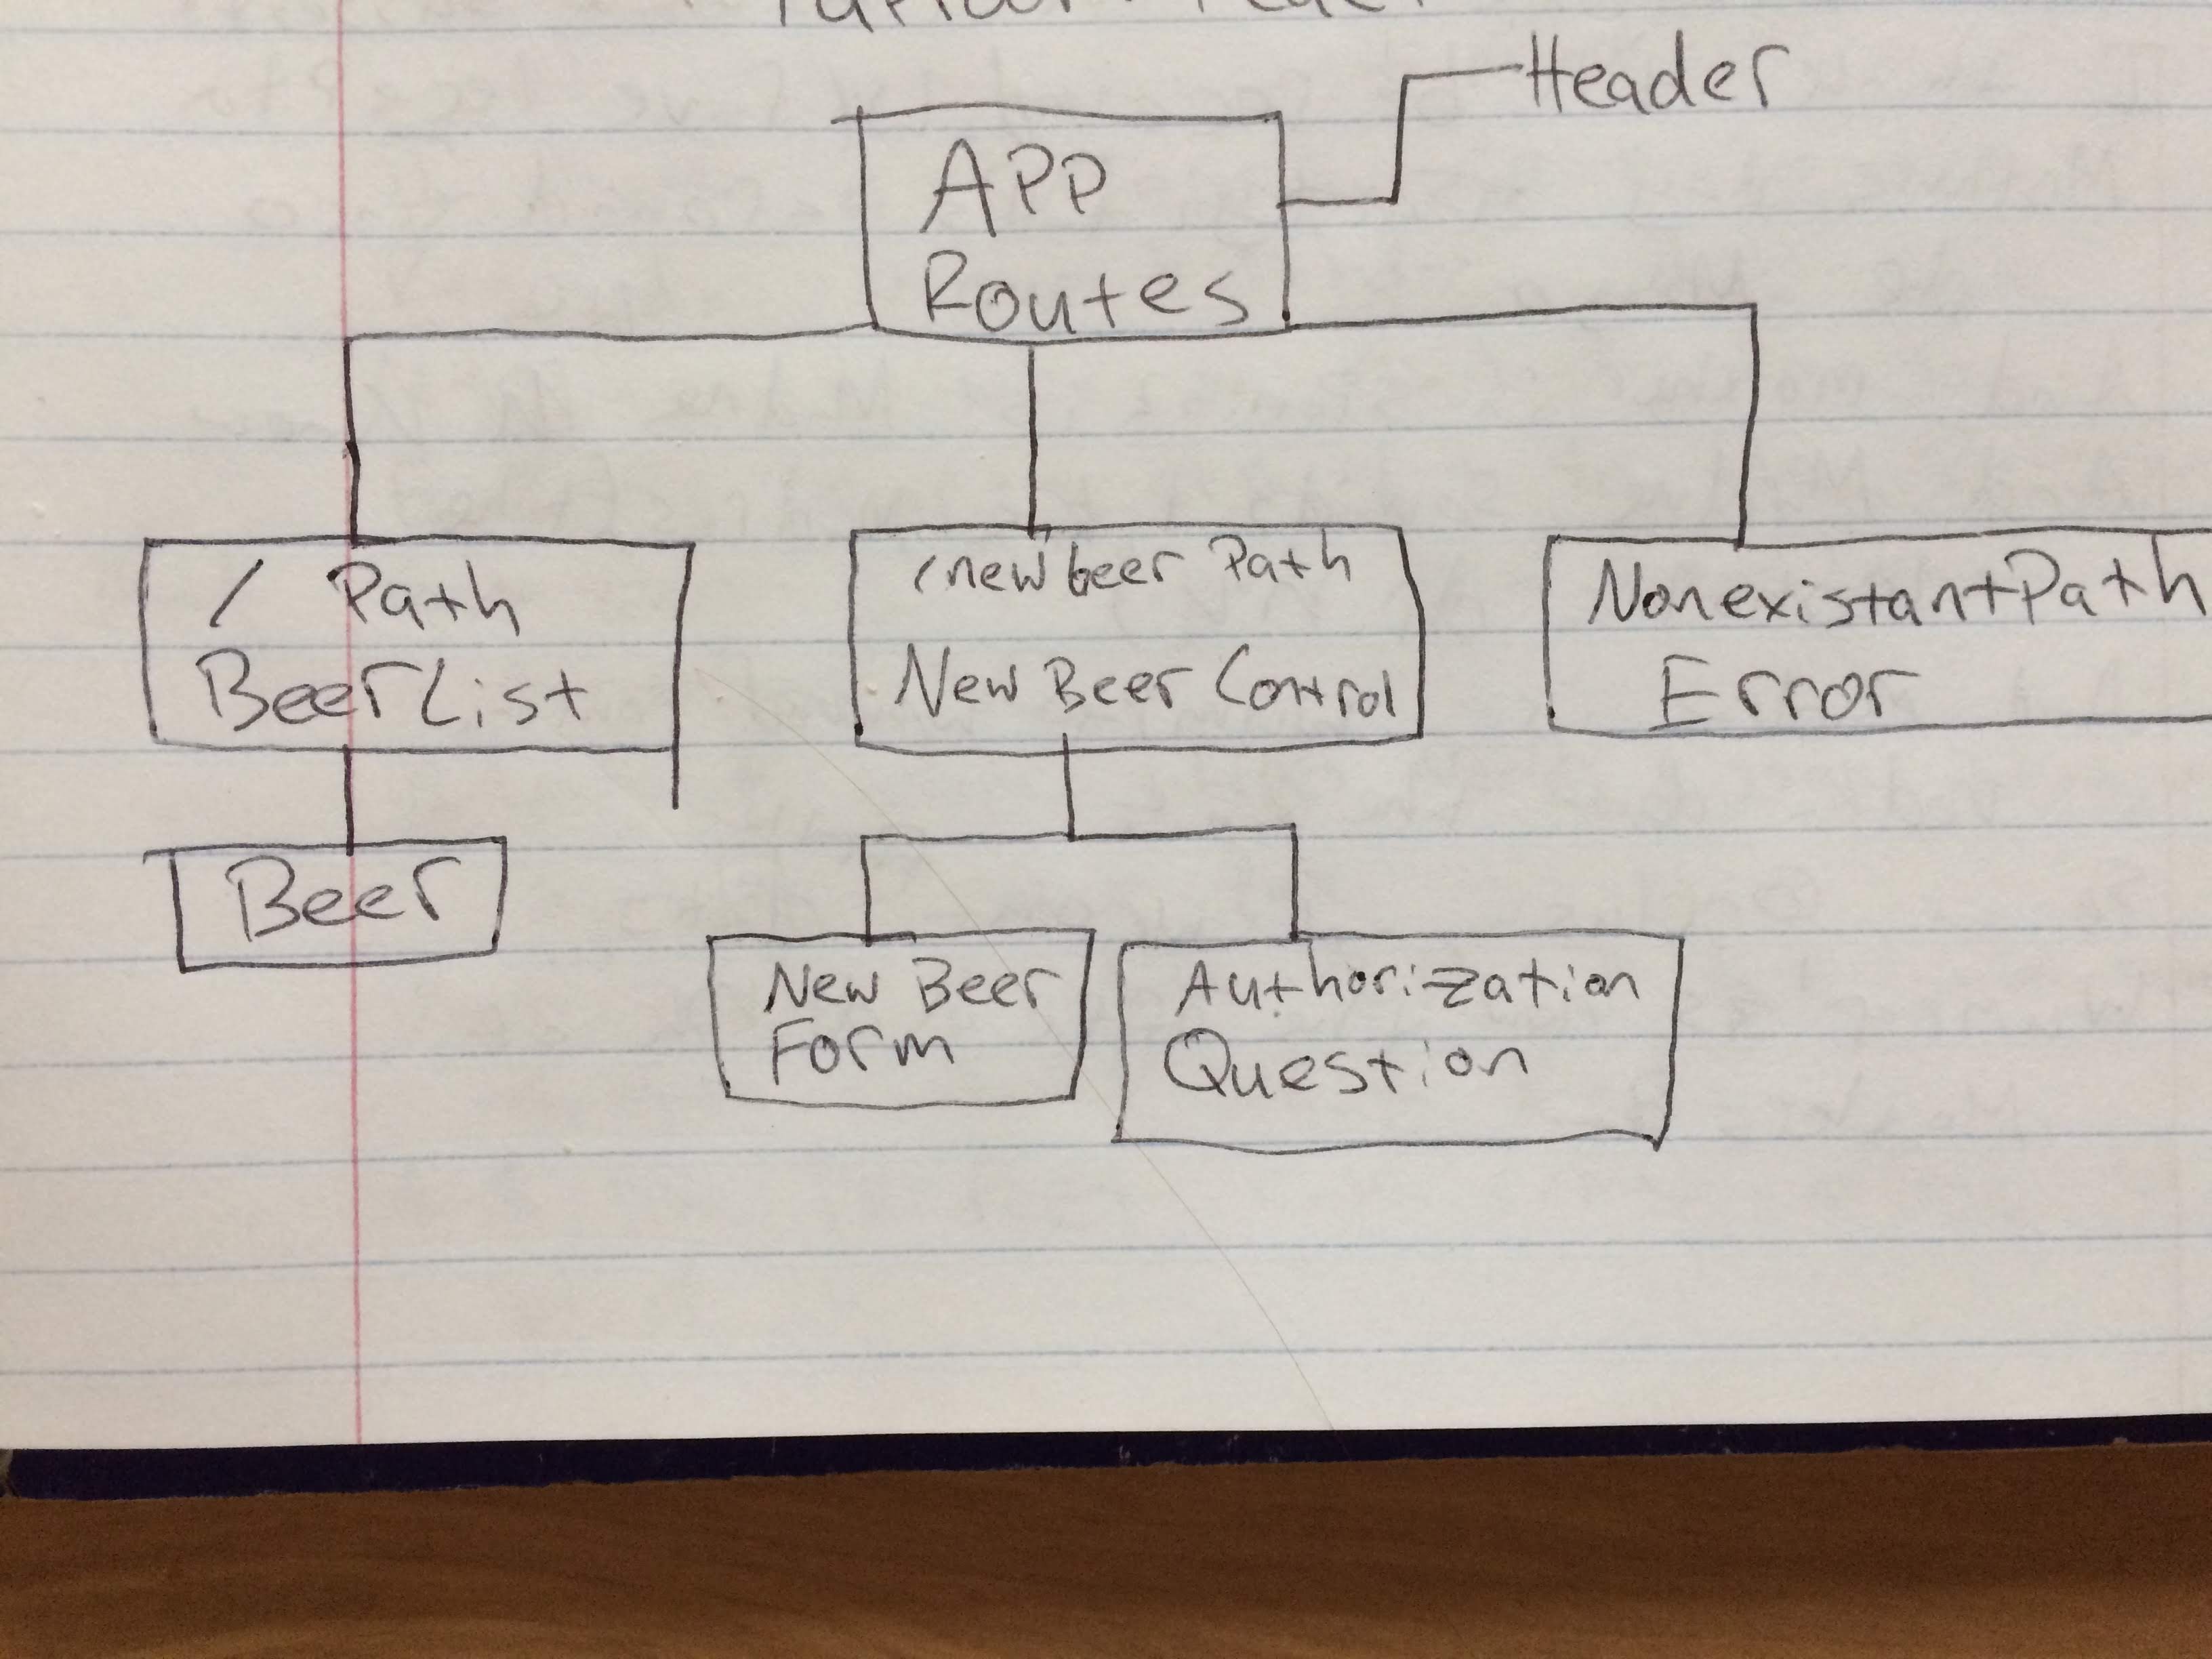 Header
APP
Routes
/ Path
BeerList
/newbeer Path
New Beer Control
NonexistantPath
Error
Beer
New Beer
Form
Authorization
Question